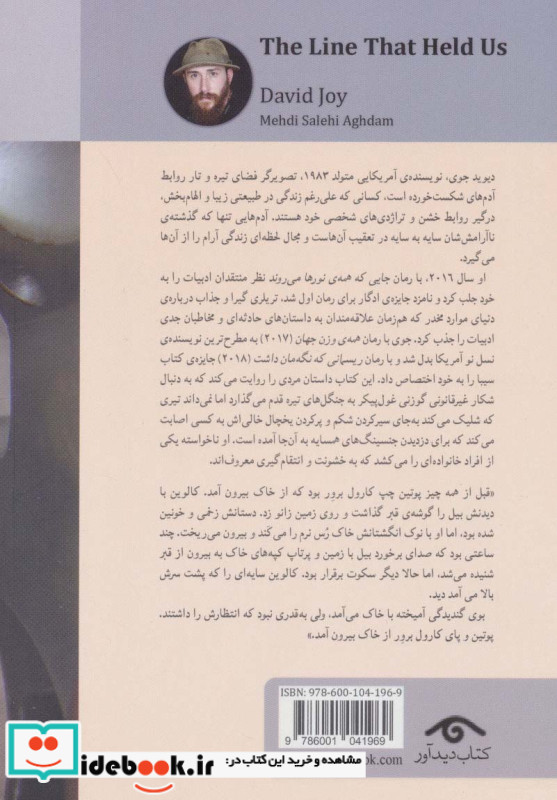 The Line That Held Us
David Joy
Mehdi Salehi Aghdam
دیوید جوی، نویسنده‌ی آمریکایی متولد ۱۹۸۳، تصویرگر فضای تیره و تار روابط
آدم‌های شکست‌خورده است، کسانی که علی‌رغم زندگی در طبیعتی زیبا و الهام‌بخش،
درگیر روابط خشن و تراژدی‌های شخصی خود هستند. آدم‌هایی تنها که گذشته‌ی
ناآرامش‌شان سایه به سایه در تعقیب آن‌هاست و مجال لحظه‌ای زندگی آرام را از آن‌ها
می‌گیرد.
او سال ۲۰۱۶، با رمان جایی که همه‌ی نورها می‌روند نظر منتقدان ادبیات را به
خود جلب کرد و نامزد جایزه‌ی ادگار برای رمان اول شد. تریلری گیرا و جذاب درباره‌ی
دنیای موارد مخدر که هم‌زمان علاقه‌مندان به داستان‌های حادثه‌ای و مخاطبان جدی
ادبیات را جذب کرد. جوی با رمان همه‌ی وزن جهان (۲۰۱۷) به مطرح‌ترین نویسنده‌ی
نسل نو آمریکا بدل شد و با رمان ریسمانی که نگه‌مان داشت (۲۰۱۸) جایزه‌ی کتاب
سیبا را به خود اختصاص داد. این کتاب داستان مردی را روایت می‌کند که به دنبال
شکار غیرقانونی گوزنی غول‌پیکر به جنگل‌های تیره قدم می‌گذارد اما نمی‌داند تیری
که شلیک می‌کند به‌جای سیرکردن شکم و پرکردن یخچال خالی‌اش به کسی اصابت
می‌کند که برای دزدیدن جنسینگ‌های همسایه به آن‌جا آمده است. او ناخواسته یکی
از افراد خانواده‌ای را می‌کشد که به خشونت و انتقام‌گیری معروف‌اند.
«قبل از همه چیز پوتین چپ کارول برور بود که از خاک بیرون آمد. کالوین با
دیدنش بیل را گوشه‌ی قبر گذاشت و روی زمین زانو زد. دستانش زخمی و خونین
شده بود، اما او با نوک انگشتانش خاک رُس نرم را می‌کَند و بیرون می‌ریخت. چند
ساعتی بود که صدای برخورد بیل با زمین و پرتاپ کپه‌های خاک به بیرون از قبر
شنیده می‌شد، اما حالا دیگر سکوت برقرار بود. کالوین سایه‌ای را که پشت سرش
بالا می آمد دید.
بوی گندیدگی آمیخته با خاک می‌آمد، ولی به‌قدری نبود که انتظارش را داشتند.
پوتین و پای کارول برور از خاک بیرون آمد.»
ISBN: 978-600-104-196-9
9 786001 041969
کتاب دیدآور
ok.com
idebook.ir
مشاهده و خرید این کتاب در: